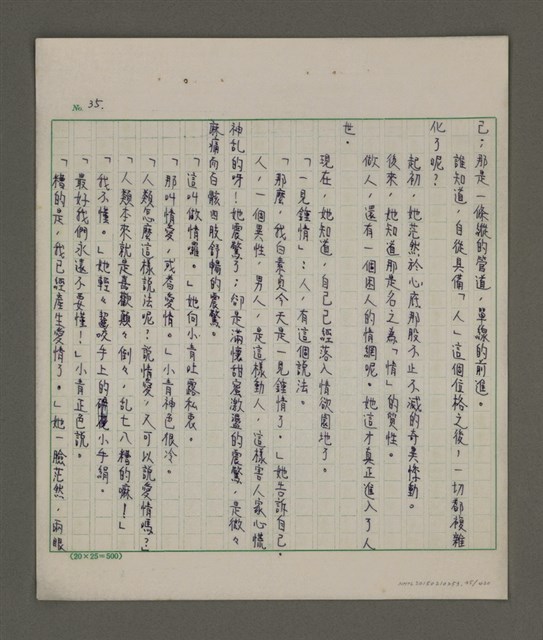 No. 35.
己；那是一條縱的管道，單線的前進。
誰知道，自從具備「人」這個位格之後，一切都複雜
化了呢？
起初，她茫然於心底那股不止不滅的奇異悸動。
後來，她知道那是名之為「情」的質性。
做人，還有一個困人的情網呢。她這才真正進入了人
世。
現在，她知道，自己已經落入情欲園地了。
「一見鍾情」：人，有這個說法。
「那麼，我白素貞今天是一見鍾情了。」她告訴自己。
人，一個異性，男人，是這樣動人，這樣害人家心慌
神乱的呀！她震驚了；卻是滿懷甜蜜激盪的震驚，是微々
麻痛向百骸四肢舒暢的震驚。
「這叫做情囉。」她向小青吐露私衷。
「那叫情愛，或者愛情。」小青神色很冷。
「人類怎麼這樣說法呢：說情愛，又可以說愛情嗎？」
「人類本來就是喜歡顛々倒々，乱七八糟的嘛！」
「我不懂。」她輕々齧咬手上的小手絹。
「最好我們永遠不要懂！」小青正色說。
「糟的是，我已經產生愛情了。」她一臉茫然，兩眼
(20×25=500)